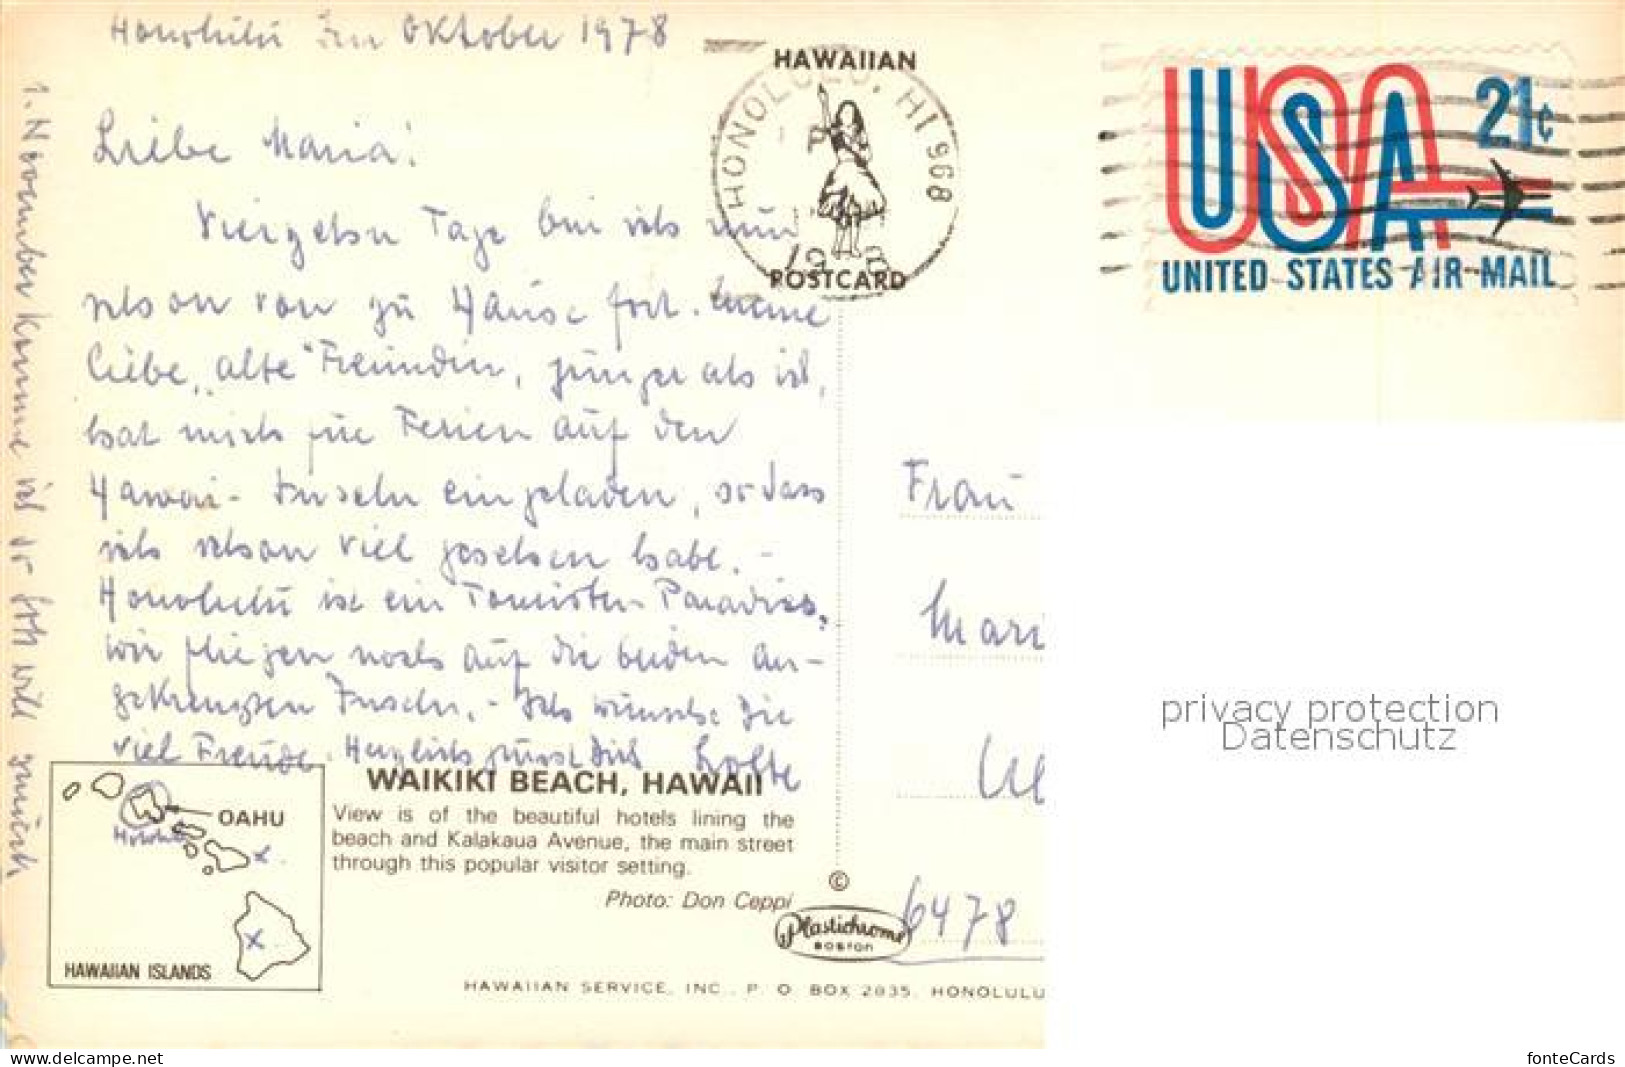 Honolulu im Oktober 1978
Liebe Maria!
Vierzehn Tage bin ich nun
schon von zu Hause fort. Meine
liebe, "alte" Freundin, jünger als ich,
hat mich für Ferien auf den
Hawai-Inseln eingeladen, so dass
ich schon viel gesehen habe. -
Honolulu ist ein Touristen Paradies,
wir fliegen noch auf die beiden an-
gekreuzten Inseln. - Ich wünsche Dir
viel Freude. Herzlich grüsst Dich Lotte
1. November komme ich so Gott will zurück
HAWAIIAN
HONOLULU, HI 968
POSTCARD
USA
21¢
UNITED STATES AIR MAIL
Frau
Mari
6478
privacy protection
Datenschutz
OAHU
Honolulu
HAWAIIAN ISLANDS
WAIKIKI BEACH, HAWAII
View is of the beautiful hotels lining the
beach and Kalakaua Avenue, the main street
through this popular visitor setting.
Photo: Don Ceppi
©
Plastichrome
BOSTON
HAWAIIAN SERVICE, INC., P. O. BOX 2835, HONOLULU
www.delcampe.net
fonteCards